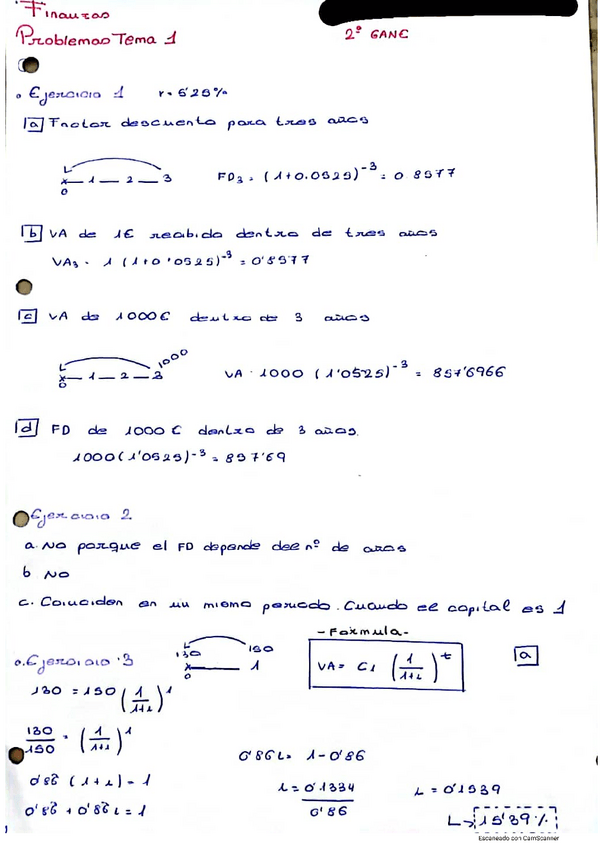 Finanzas
Problemas Tema 1
2º GANE
Ejercicio 1 r = 5'25%
a Factor descuento para tres años
0 1 2 3 FD3 = (1+0.0525)^-3 = 0'8577
b VA de 1€ recibido dentro de tres años
VA3 = 1 (1+0'0525)^-3 = 0'8577
c VA de 1000€ dentro de 3 años
1000
0 1 2 3 VA = 1000 (1'0525)^-3 = 857'6966
d FD de 1000€ dentro de 3 años.
1000(1'0525)^-3 = 857'69
Ejercicio 2
a. No porque el FD depende del nº de años
b No
c. Coinciden en un mismo periodo. Cuando el capital es 1
-Formula-
Ejercicio 3 130 150 0 1 VA = C1 (1/1+i)^t a
130 = 150 (1/1+i)^1
130/150 = (1/1+i)^1
0'86 i = 1-0'86
0'86 (1+i) = 1 i = 0'1334/0'86 i = 0'1539
0'86 + 0'86 i = 1 i → 15'39%
Escaneado con CamScanner